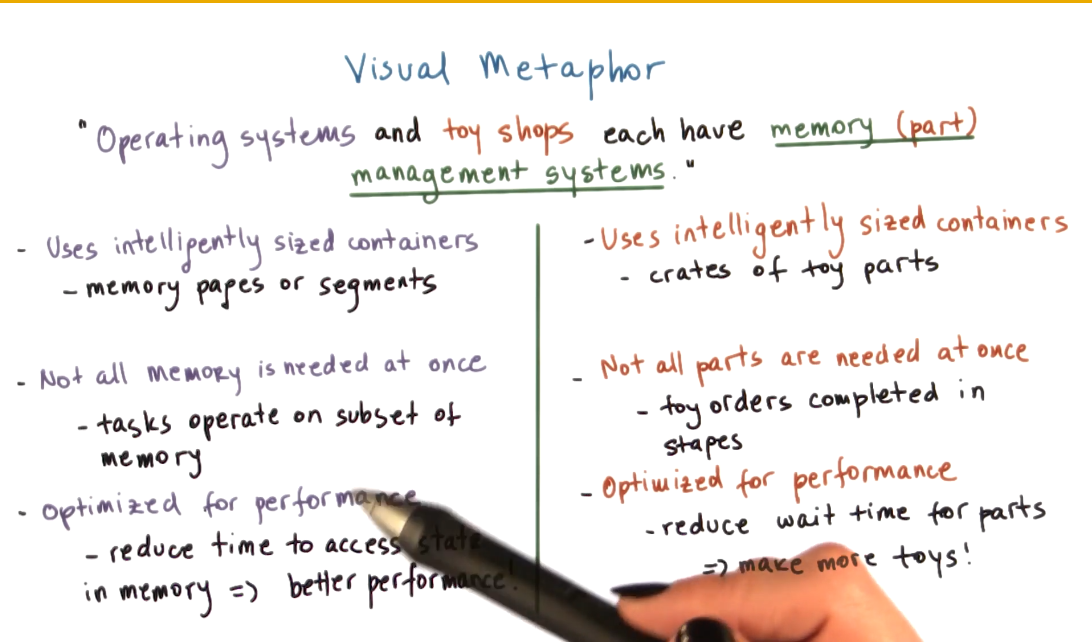 Visual Metaphor
"Operating systems and toy shops each have memory (part)
management systems."
- Uses intelligently sized containers
- memory pages or segments
- Not all memory is needed at once
- tasks operate on subset of
memory
- Optimized for performance
- reduce time to access state
in memory => better performance!
- Uses intelligently sized containers
- crates of toy parts
- Not all parts are needed at once
- toy orders completed in
stages
- Optimized for performance
- reduce wait time for parts
=> make more toys!